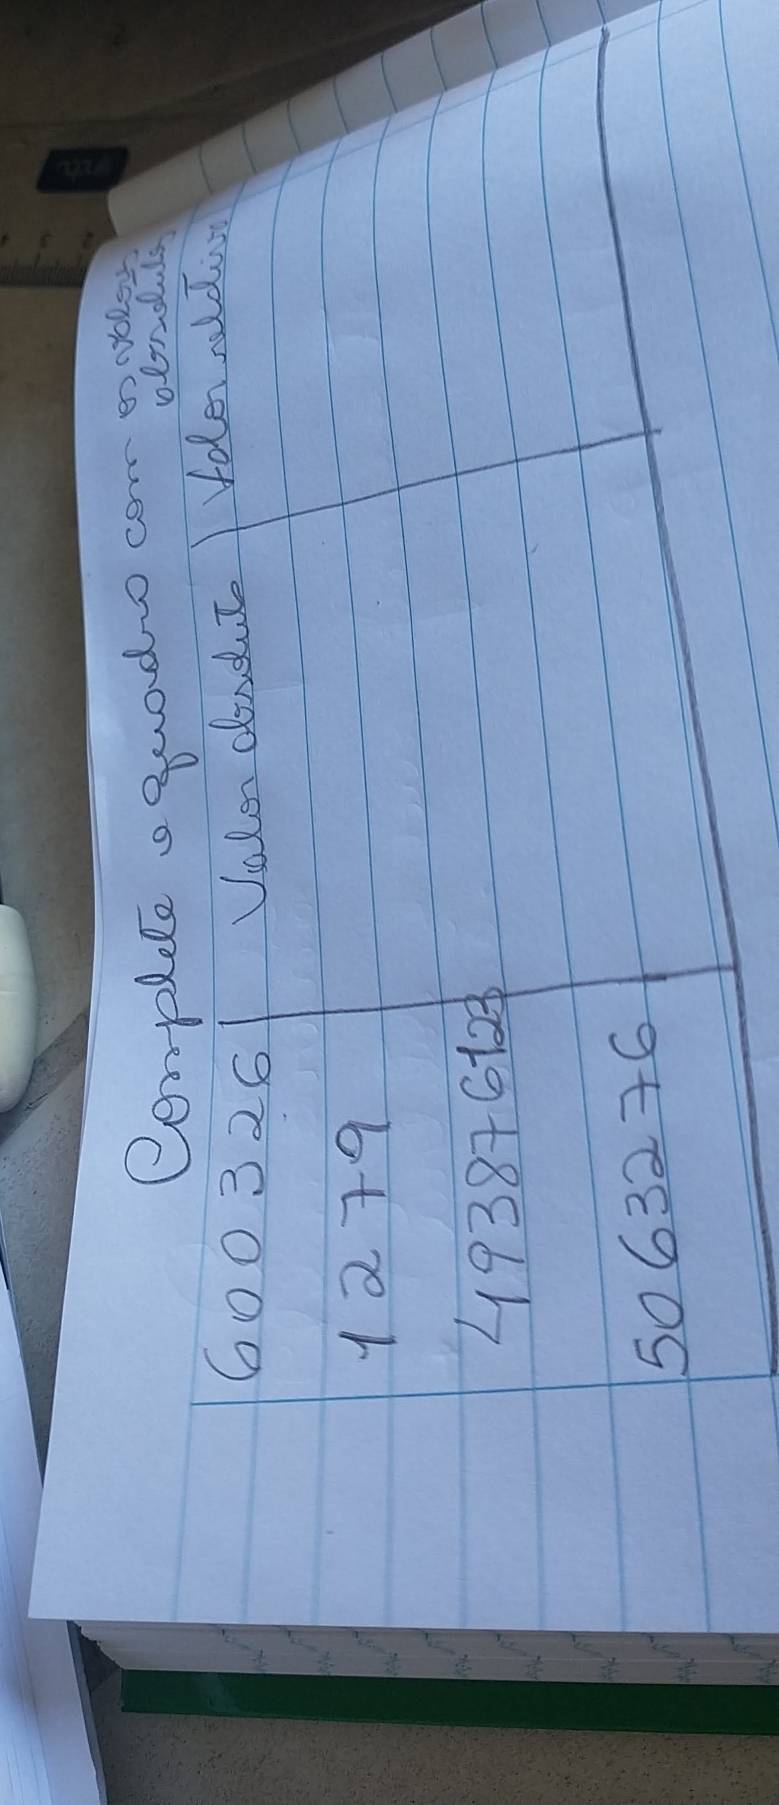 Complete o quadro com os valores
absolutos
600326 Valor absoluto Valor relativo
1279
493876123
50632276